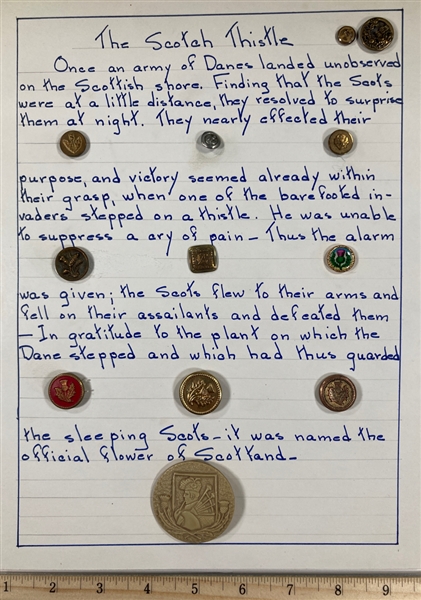 The Scotch Thistle
Once an army of Danes landed unobserved
on the Scottish shore. Finding that the Scots
were at a little distance, they resolved to surprise
them at night. They nearly effected their
purpose, and victory seemed already within
their grasp, when one of the barefooted in-
vaders stepped on a thistle. He was unable
to suppress a cry of pain - Thus the alarm
was given; the Scots flew to their arms and
fell on their assailants and defeated them
- In gratitude to the plant on which the
Dane stepped and which had thus guarded
the sleeping Scots - it was named the
official flower of Scotland -
1 2 3 4 5 6 7 8 9